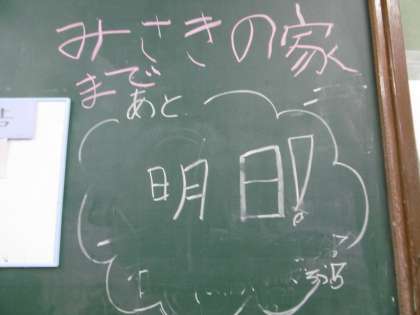 みさきの家
まで
あと
明日!